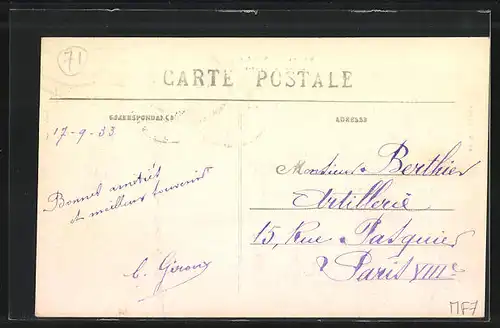 71
CARTE POSTALE
CORRESPONDANCE
ADRESSE
17-9-33
Bonnes amitiés
et meilleurs souvenirs
C. Giroux
Monsieur Berthier
Artillerie
15, Rue Pasquier
Paris VIIIe
MF7